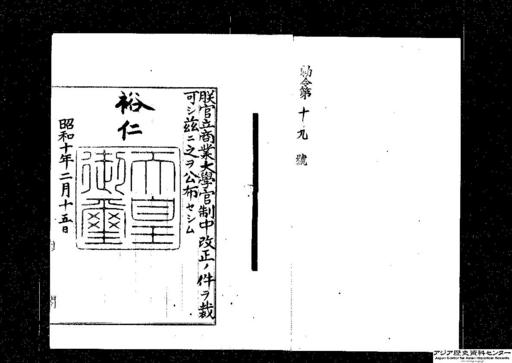 勅令第十九號
朕官立商業大學官制中改正ノ件ヲ裁
可シ茲ニ之ヲ公布セシム
裕仁
天皇
御璽
昭和十年二月十五日
アジア歴史資料センター
Japan Center for Asian Historical Records